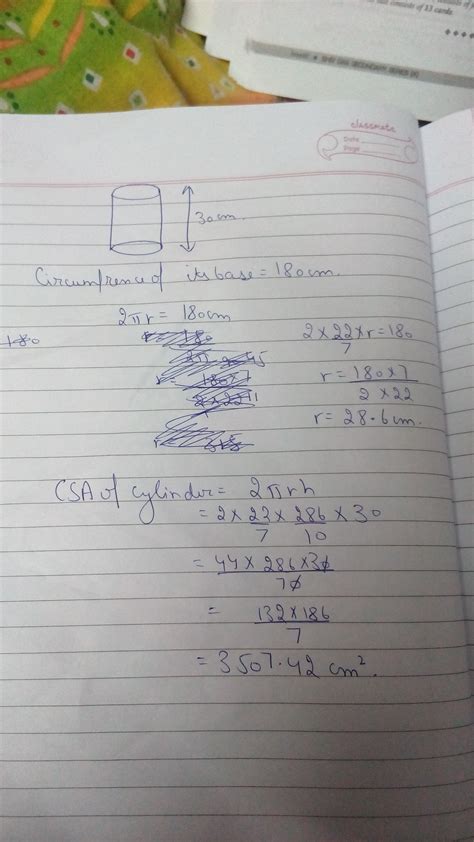 consists of 13 cards
classmate
Date
Page
30cm.
Circumfrence of its base = 180cm.
2πr = 180cm
180
2 × 22/7 × r = 180
r = 180 × 7 / 2 × 22
r = 28.6 cm.
CSA of cylinder = 2πrh
= 2 × 22/7 × 286/10 × 30
= 44 × 286 × 30 / 70
= 132 × 186 / 7
= 3507.42 cm².